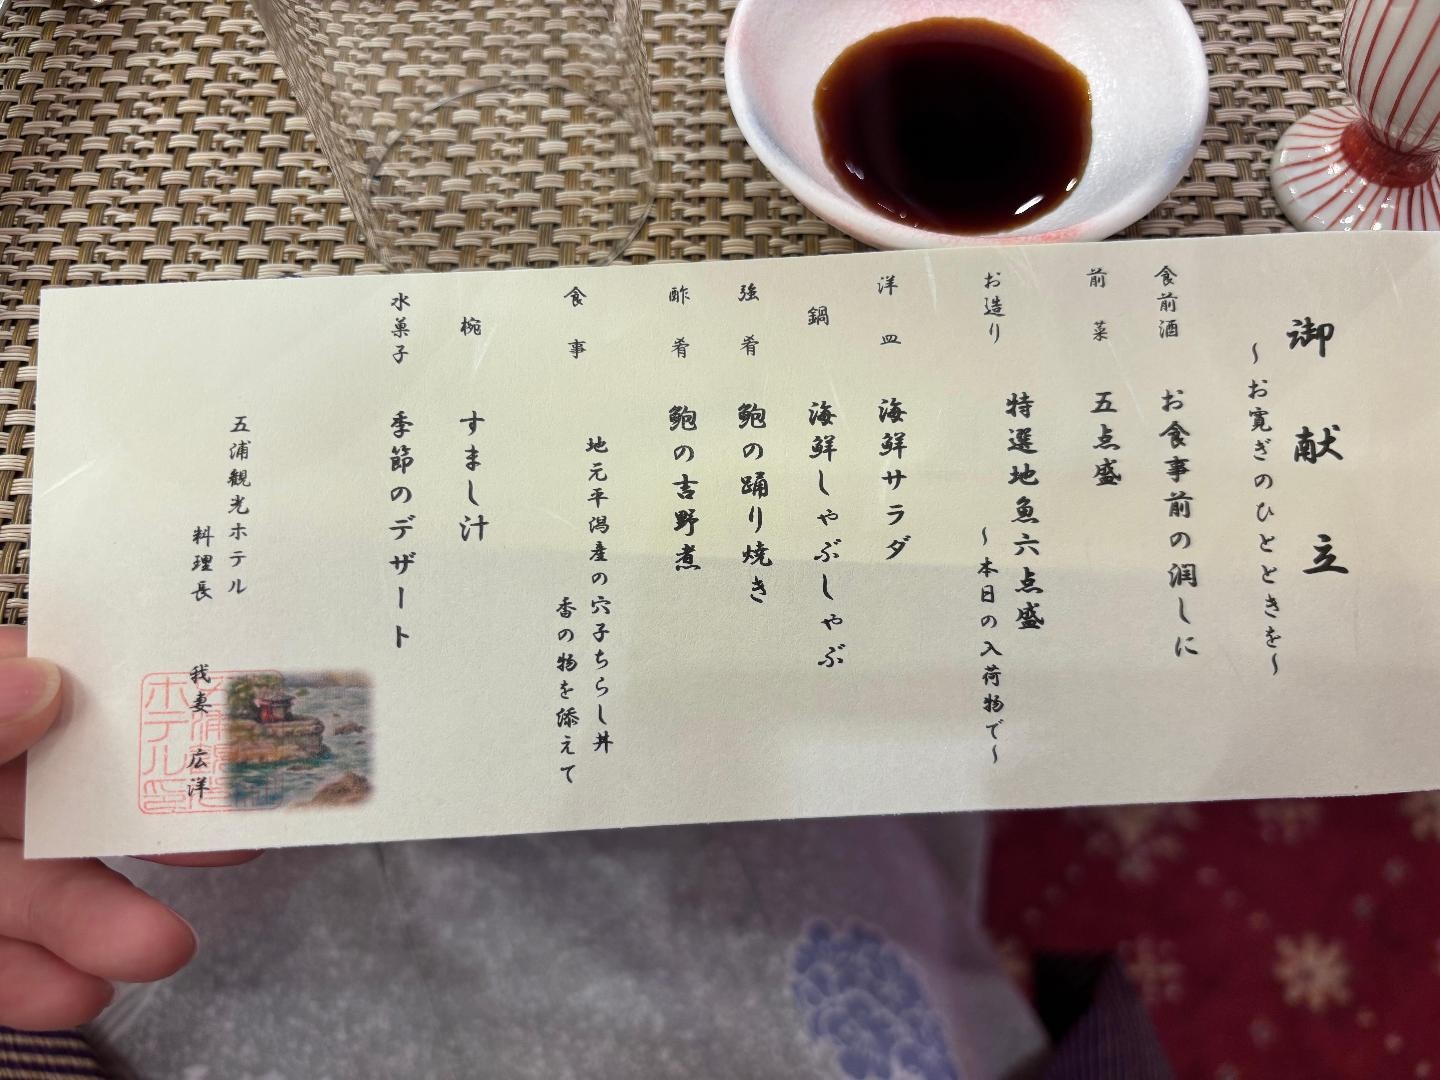 御献立
～お寛ぎのひとときを～
食前酒 お食事前の潤しに
前菜 五点盛
お造り 特選地魚六点盛
～本日の入荷物で～
洋皿 海鮮サラダ
鍋 海鮮しゃぶしゃぶ
強肴 鮑の踊り焼き
酢肴 鮑の吉野煮
食事 地元平潟産の穴子ちらし丼
香の物を添えて
椀 すまし汁
水菓子 季節のデザート
五浦観光ホテル
料理長 我妻 広洋
ホテル印